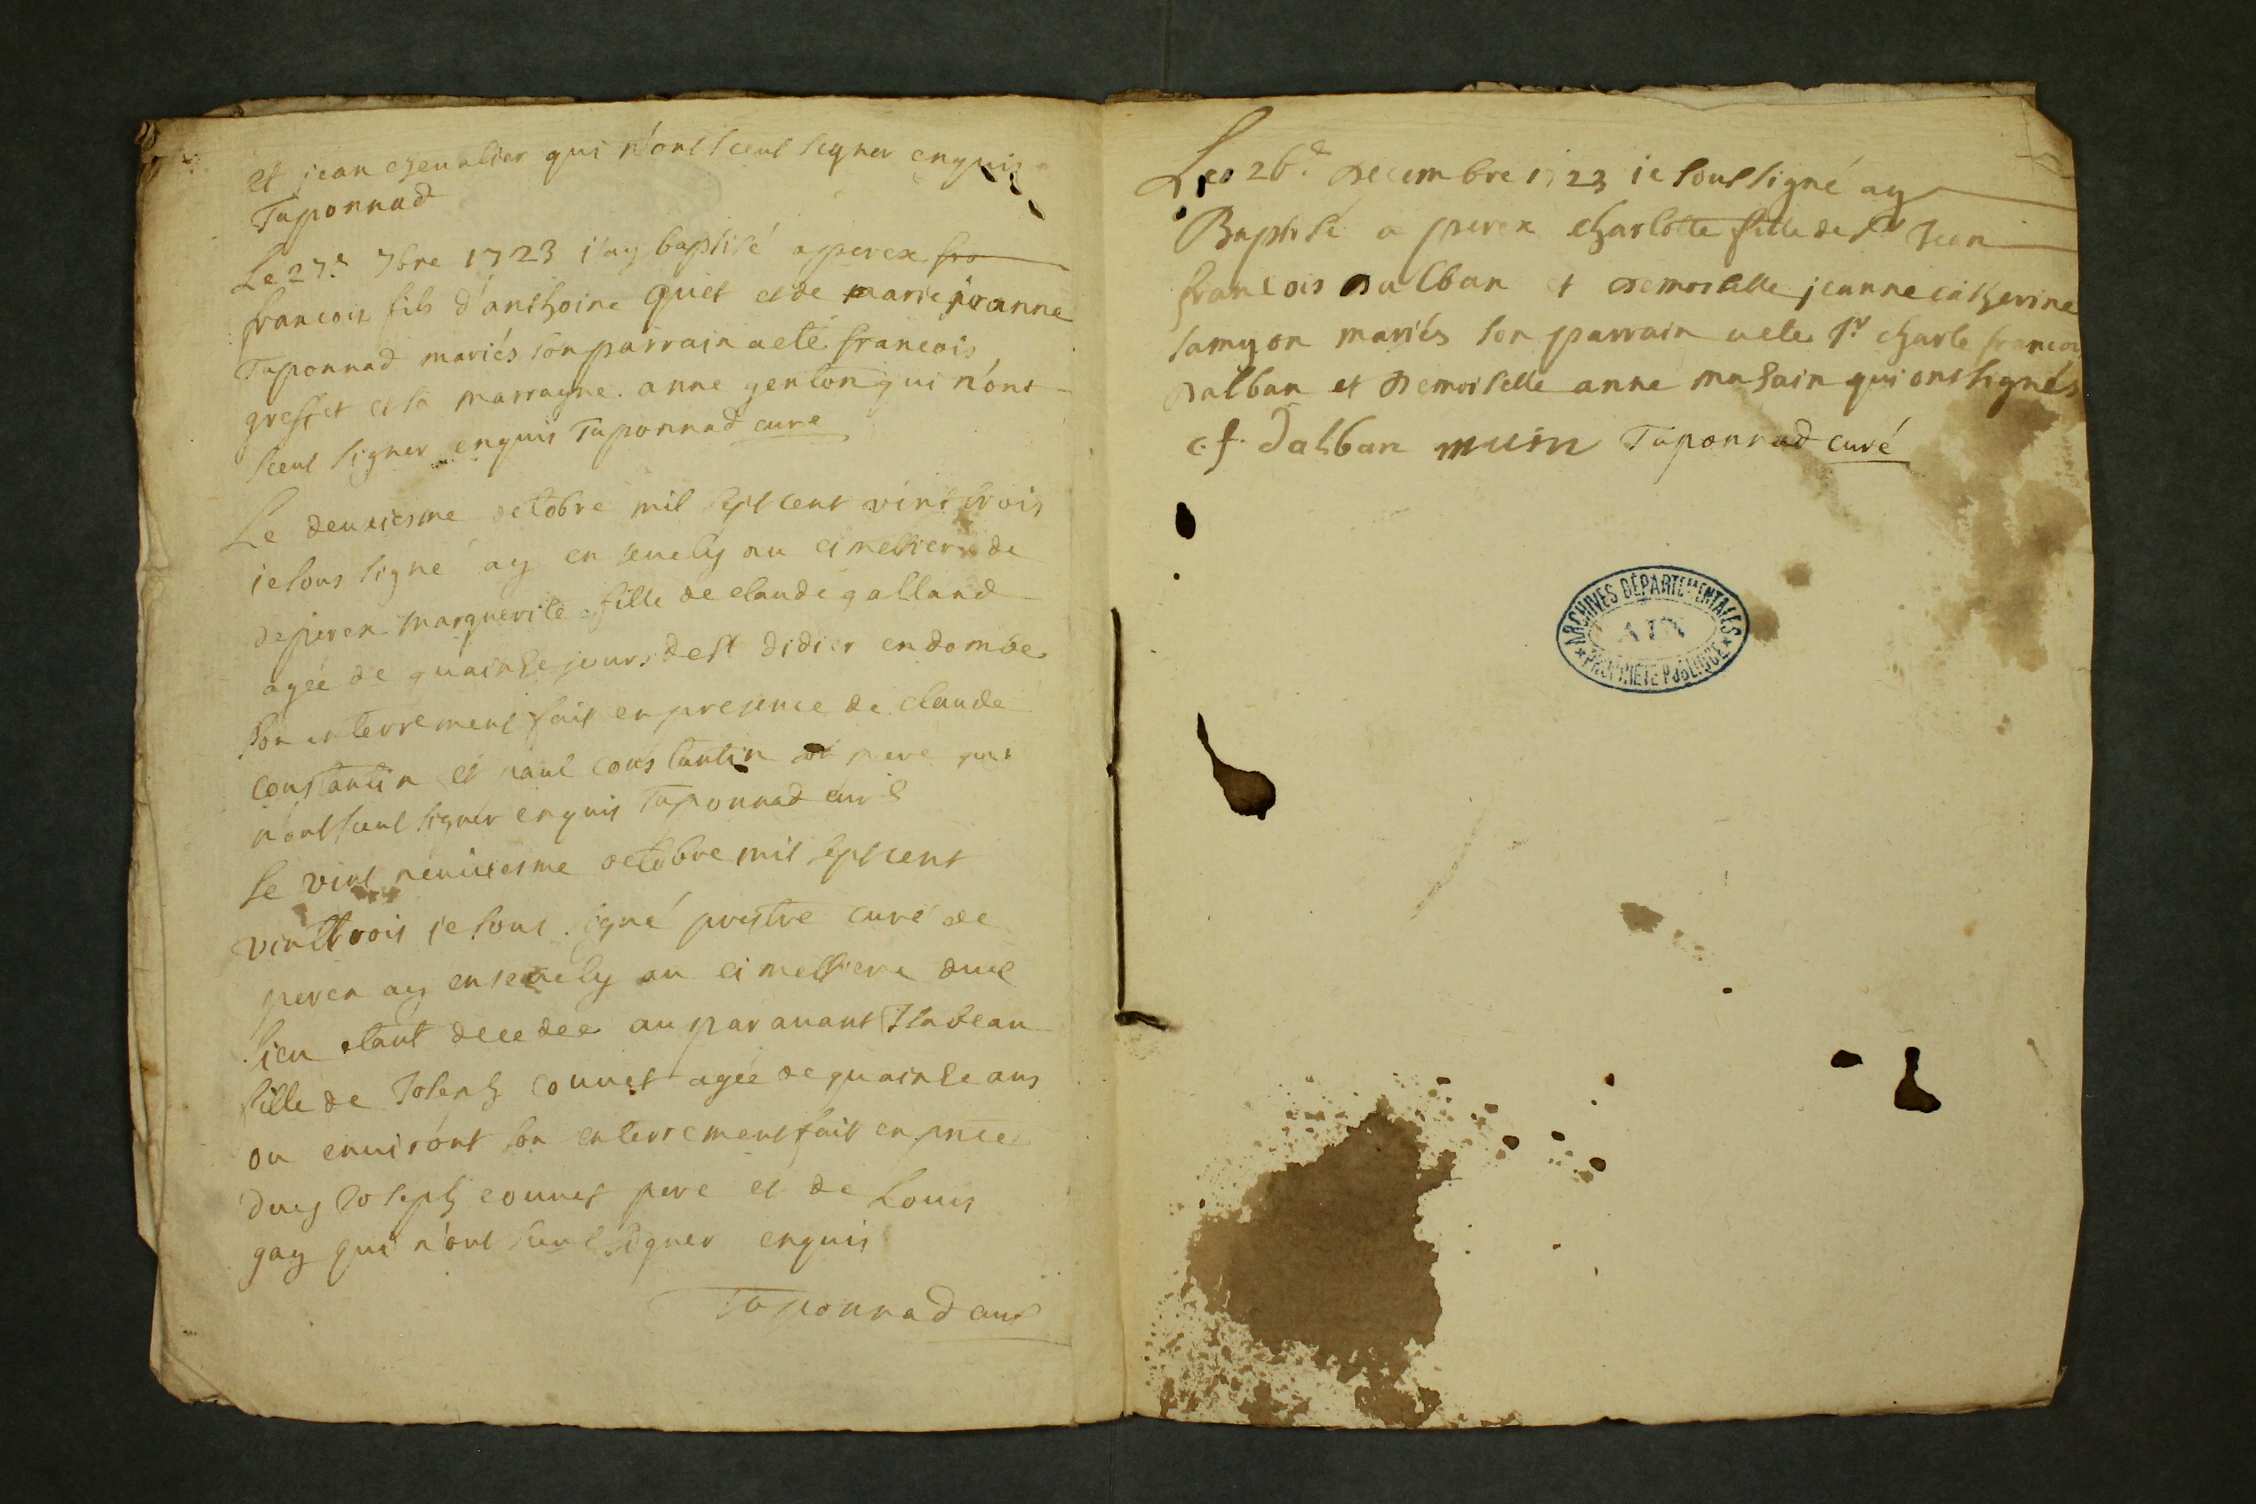 et jean chevalier qui n'ont sceut signer enquis
Taponnad
Le 27e 7bre 1723 j'ay baptisé a perex fra
francois fils d'anthoine guet et de marie jeanne
Taponnad mariés son parrain a eté francois
greffet et sa marrayne anne genton qui n'ont
sceut signer enquis Taponnad curé
Le deuxiesme octobre mil sept cent vint trois
je sous signé ay ensevely au cimettiere de
de perex marguerite fille de claude galland
agée de quainze jours de st didier en dombe
son enterrement fait en presence de claude
constantin et paul constantin pere qui
n'ont sceut signer enquis Taponnad curé
Le vint neuviesme octobre mil sept cent
vint trois je sous signé prestre curé de
perex ay ensevely au cimettiere dud
lieu etant decedée au paravant Isabeau
fille de Joseph couvet agée de quainze ans
ou environt son enterrement fait en pnce
dud Joseph couvet pere et de Louis
gay qui n'ont sceut signer enquis
Taponnad curé
Le 26e decembre 1723 je sous signé ay
Baptisé a perex charlotte fille de sr Jean
francois dalban et demoiselle jeanne catherine
lamyon mariés son parrain a eté sr charle francois
dalban et demoiselle anne muhain qui ont signés
c f Dalban muin Taponnad curé
ARCHIVES DÉPARTEMENTALES
AIN
PROPRIÉTÉ PUBLIQUE